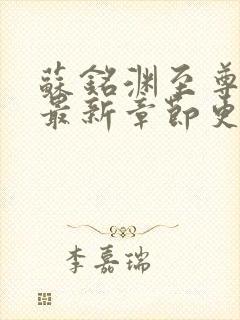 蘇銘渊至尊
最新章節更
李嘉瑞